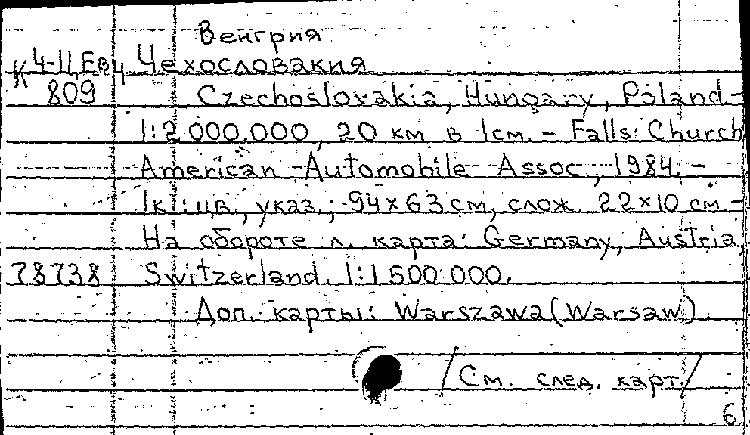 Венгрия
К 4-11,Евч Чехословакия
809 Czechoslovakia, Hungary, Poland -
1:2 000.000, 20 км в 1см. - Falls. Church
American Automobile Assoc, 1984. -
1к.: цв., указ.; 94x63 см, слож. 22x10 см -
На обороте л. карта: Germany, Austria,
78738 Switzerland. 1:1 500 000.
Доп. карты: Warszawa (Warsaw)
/См. след. карт./
6